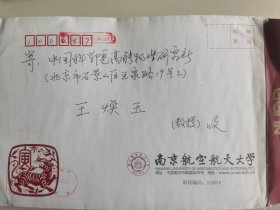 100087
寄: 中国科学院高能物理研究所
(北京市石景山区玉泉路19号乙)
王 焕 玉
(教授) 收
南京航空航天大学
NANJING UNIVERSITY OF AERONAUTICS AND ASTRONAUTICS
邮政编码: 210016
寅